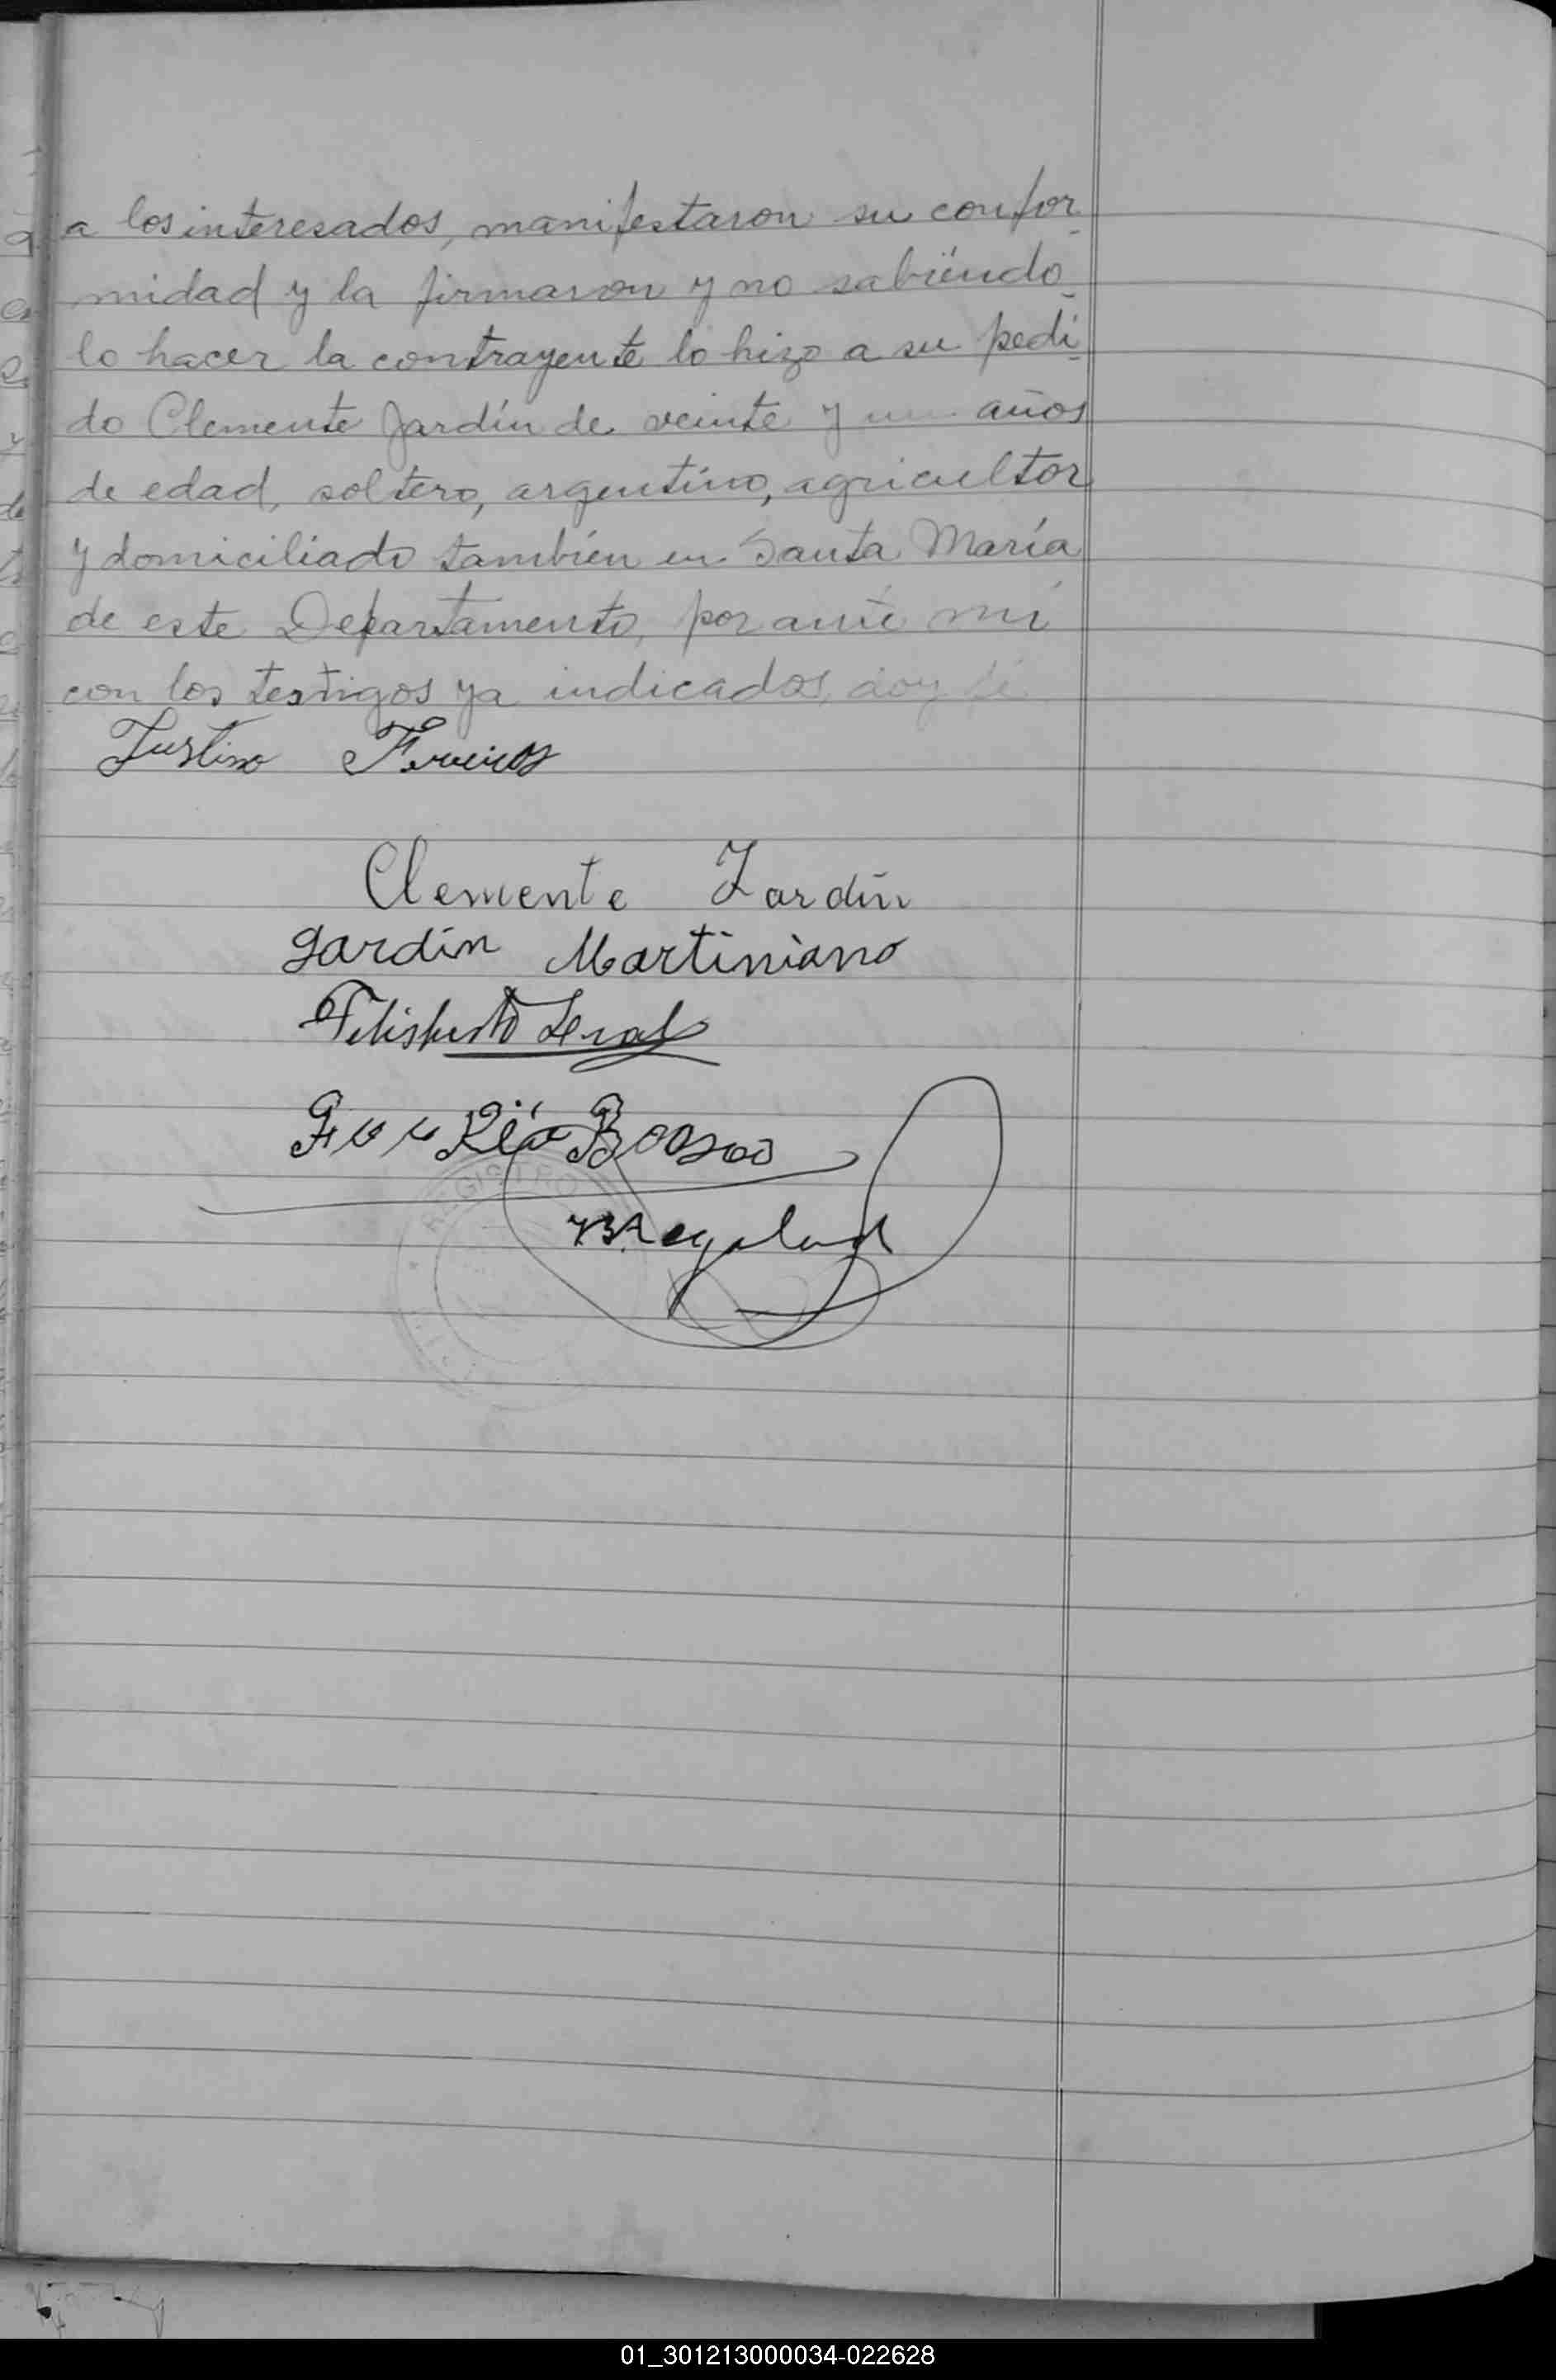 a los interesados, manifestaron su confor-
midad y la firmaron y no sabiendo-
lo hacer la contrayente lo hizo a su pedi-
do Clemente Jardín de veinte y un años
de edad, soltero, argentino, agricultor
y domiciliado tambien en Santa María
de este Departamento, por ante mí
con los testigos ya indicados, doy fé
Justino
Clemente Jardín
Jardín Martiniano
REGISTRO
01_301213000034-022628